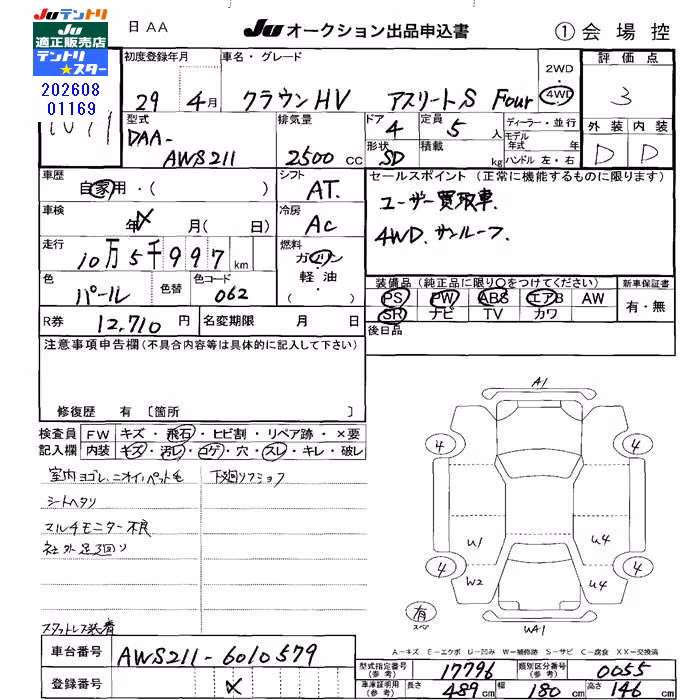 Juテントリ
Ju
適正販売店
テントリ
★スター
202608
01169
日 AA
Ju オークション出品申込書
① 会場控
初度登録年月
29年4月
車名・グレード
クラウンHV アスリートS Four
2WD・4WD
評価点
3
外装 内装
D D
型式
DAA-
AWS211
排気量
2500cc
ドア
4
定員
5人
形状
SD
積載
kg
ディーラー・並行
モデル年式 年
ハンドル 左・右
車歴
自家用・( )
シフト
AT.
セールスポイント (正常に機能するものに限ります)
ユーザー買取車.
4WD.サンルーフ.
車検
年 月( 日)
冷房
AC
走行
10万5千997km
燃料
ガソリン
軽油
・( )
色
パール
色替
色コード
062
装備品 (純正品に限り○をつけてください)
PS PW ABS エアB AW
SR ナビ TV カワ
新車保証書
有・無
後日品
R券
12,710円
名変期限 月 日
注意事項申告欄(不具合内容等は具体的に記入して下さい)
修復歴 有 〔箇所 〕
検査員
記入欄
FW キズ・飛石・ヒビ割・リペア跡・×要
内装 キズ・汚レ・コゲ・穴・スレ・キレ・破レ
室内ヨゴレ、ニオイ、ペット毛
下廻りサビ
シートヘタリ
マルチモニター不良
社外足廻り
スタットレス装着
A1
4 4
U1 U4
W2 U4
4 4
有
スペア
WA1
A-キズ E-エクボ U-凹み W-補修跡 S-サビ C-腐食 XX-交換済
車台番号
AWS211-6010579
登録番号
型式指定番号
(参考)
17796
類別区分番号
(参考)
0055
車庫証明用
(参考)
長さ 489cm 幅 180cm 高さ 146cm